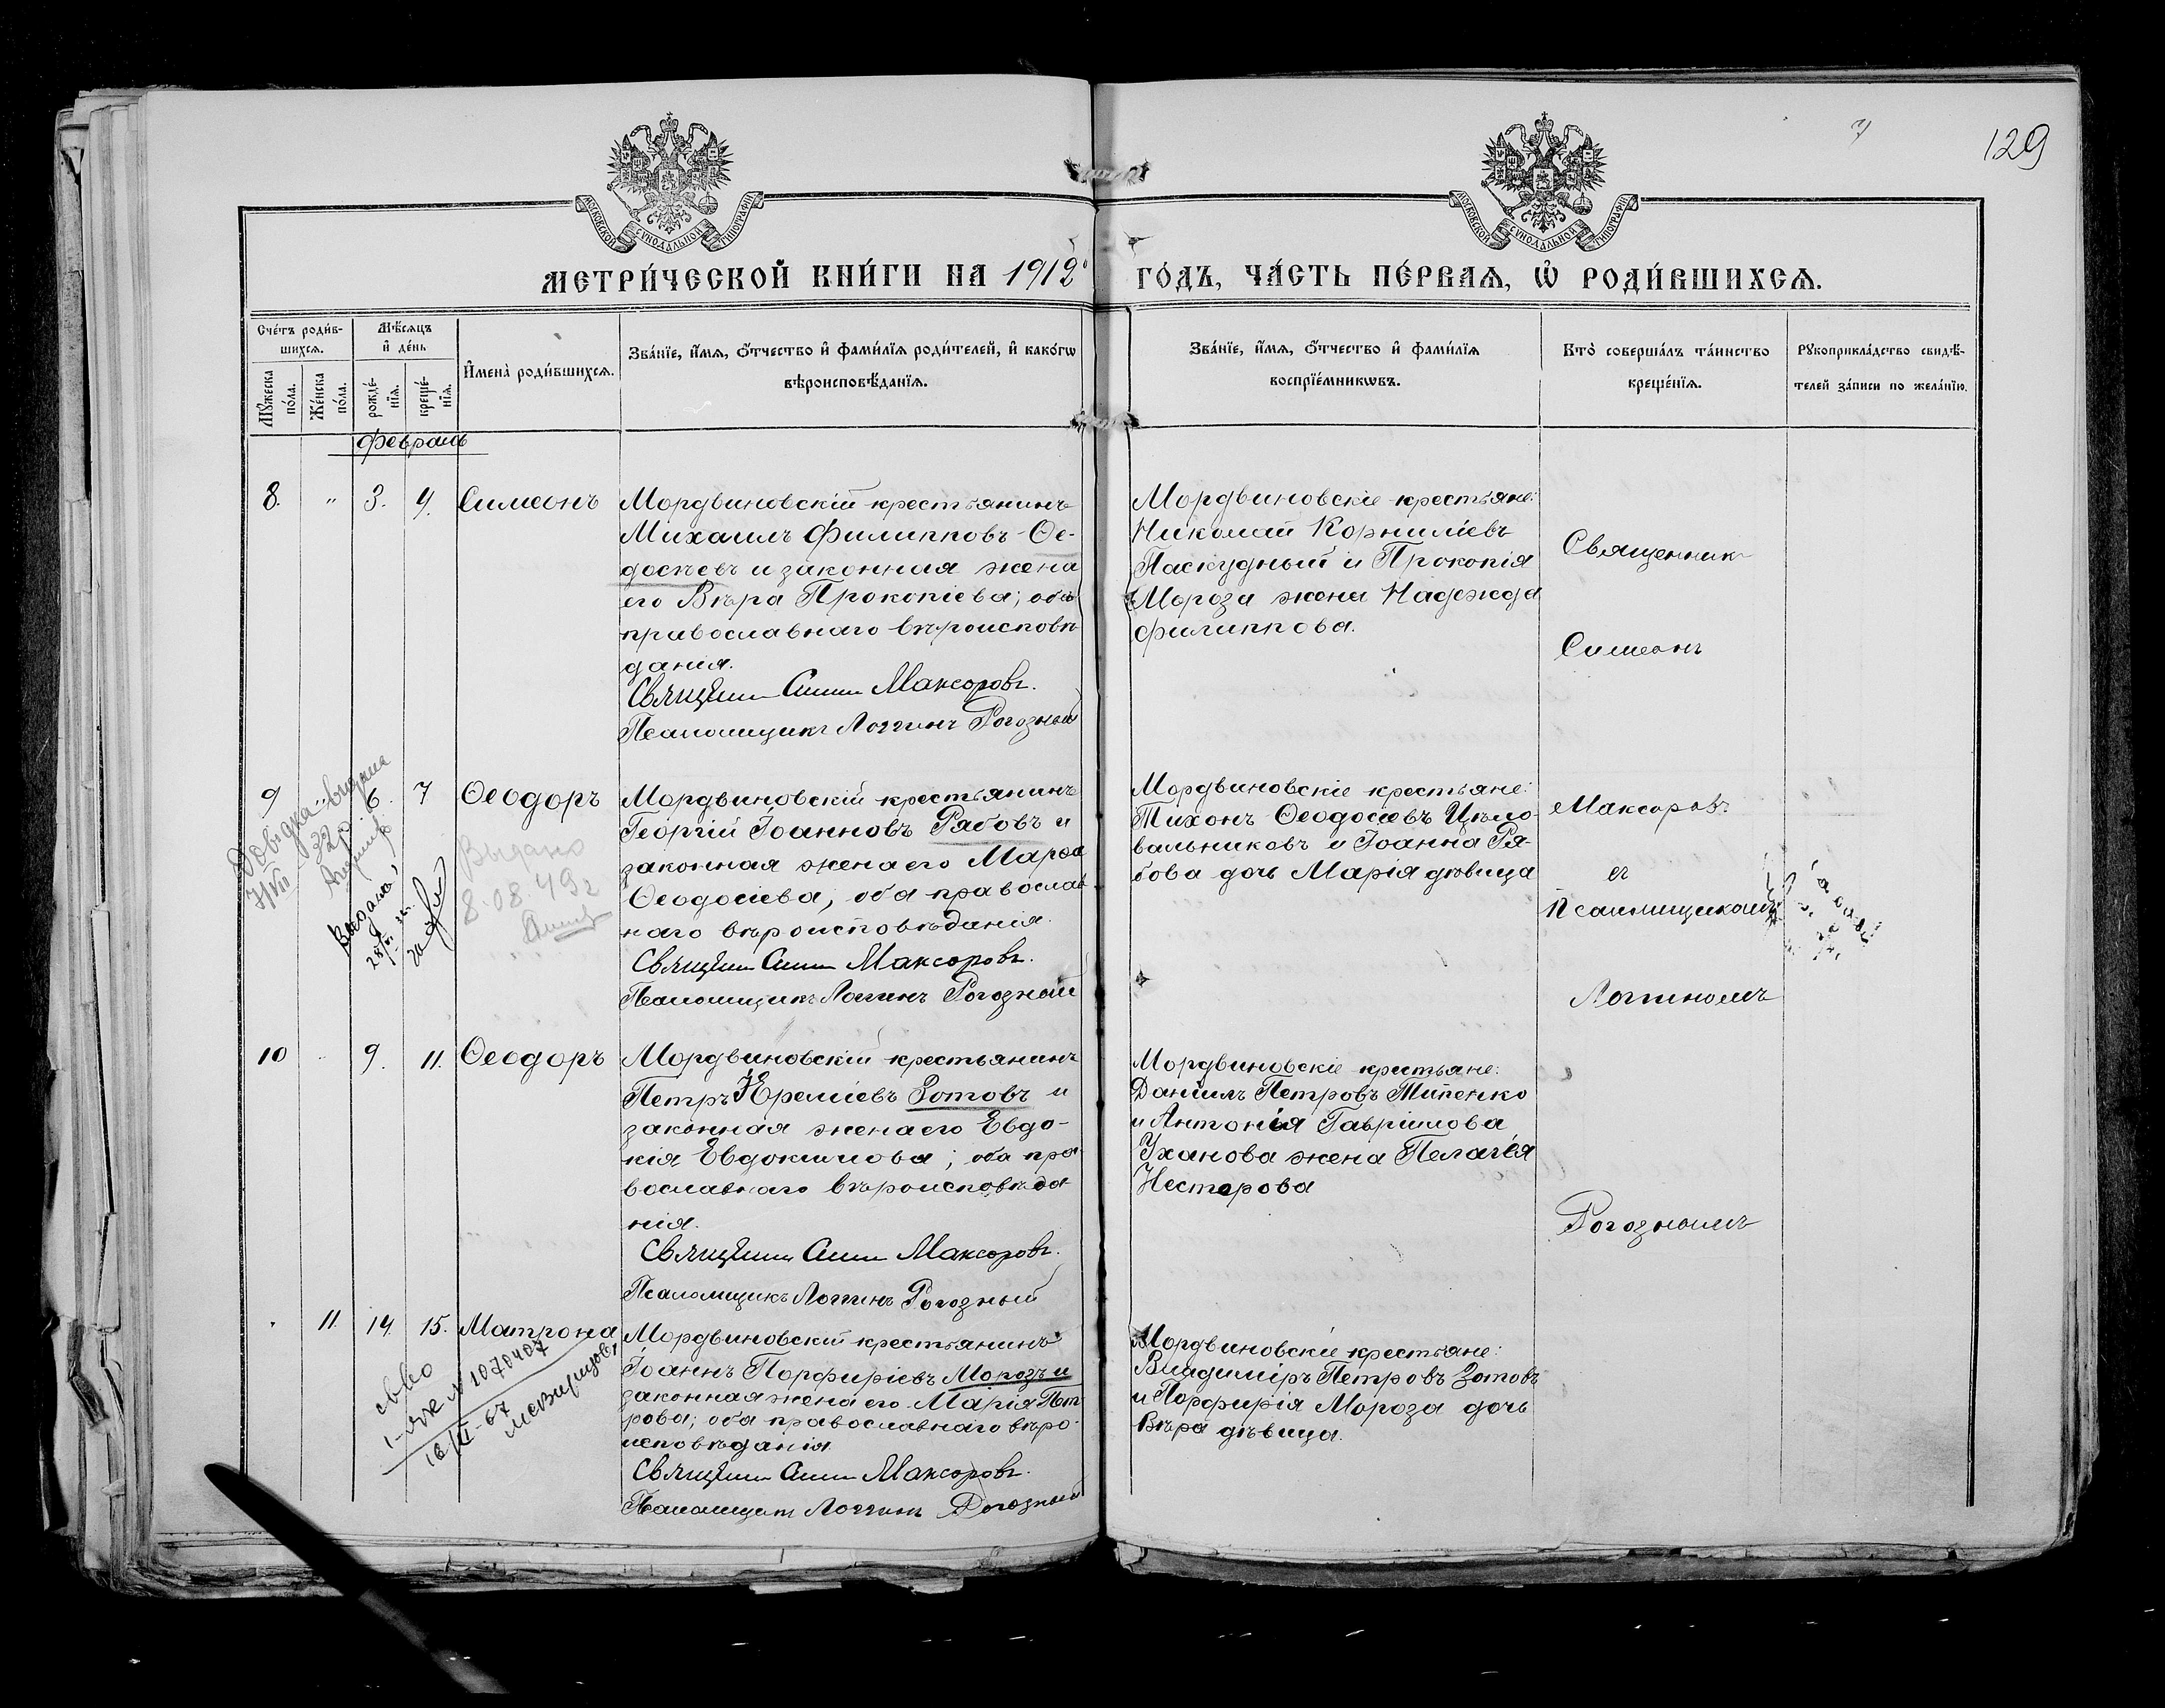 129
МОСКОВСКОЙ СѴНОДАЛЬНОЙ ТИПОГРАФІИ
МОСКОВСКОЙ СѴНОДАЛЬНОЙ ТИПОГРАФІИ
МЕТРИ́ЧЕСКОЙ КНИ́ГИ НА 1912
ГО́ДЪ, ЧА́СТЬ ПЕ́РВАѦ, Ѡ҆ РОДИ́ВШИХСѦ.
Сче́тъ роди́в-
шихсѧ.
Мꙋ́жеска по́ла.
Же́нска по́ла.
Мѣ́сѧцъ
и҆ де́нь
рожде́-
нїѧ.
креще́-
нїѧ.
И҆мена̀ роди́вшихсѧ.
Зва́нїе, и҆́мѧ, ѻ҆́тчество и҆ фами́лїѧ роди́телей, и҆ како́гѡ
вѣроисповѣ́данїѧ.
Зва́нїе, и҆́мѧ, ѻ҆́тчество и҆ фами́лїѧ
воспрїе́мникѡвъ.
Кто̀ соверша́лъ та́инство
креще́нїѧ.
Рꙋкоприкла́дство свидѣ́-
телей за́писи по жела́нїю.
Февраль
8. " 3. 4. Симеонъ
Мордвиновскій крестьянинъ
Михаилъ Филипповъ Ѳе-
досѣевъ и законная жена
его Вѣра Прокопіева; оба
православнаго вѣроисповѣ
данія.
Максоровъ.
Псаломщикъ Логгинъ Рогозный
Мордвиновскіе крестьяне:
Николай Корниліевъ
Паскудный и Прокопія
Мороза жена Надежда
Филиппова.
Священник
Симеонъ
9 " 6. 7 Ѳеодоръ
Довідка видана
Выдано
8.08.49г
Мордвиновскій крестьянинъ
Георгій Іоанновъ Рябовъ и
законная жена его Марѳа
Ѳеодосіева, оба православ
наго вѣроисповѣданія.
Максоровъ.
Псаломщикъ Логгинъ Рогозный
Мордвиновскіе крестьяне:
Тихонъ Ѳеодосіевъ Цѣло-
вальниковъ и Іоанна Ря-
бова дочь Марія дѣвица
Максоровъ
съ
Псаломщикомъ
Логгиномъ
10 9. 11. Ѳеодоръ
Мордвиновскій крестьянинъ
Петръ Іереміевъ Зотовъ и
законная жена его Евдо-
кія Евдокимова; оба пра
вославнаго вѣроисповѣда
нія.
Максоровъ.
Псаломщикъ Логгинъ Рогозный
Мордвиновскіе крестьяне:
Даніилъ Петровъ Типенко
и Антонія Гавріилова
Уханова жена Пелагея
Нестерова
Рогознымъ
11. 14. 15. Матрона
№ 1070407
16/II-67
Мордвиновскій крестьянинъ
Іоаннъ Порфиріевъ Морозъ и
законная жена его Марія Пет
рова; оба православнаго вѣро-
исповѣданія.
Максоровъ.
Псаломщикъ Логгинъ Рогозный
Мордвиновскіе крестьяне:
Владиміръ Петровъ Зотовъ
и Порфирія Мороза дочь
Вѣра дѣвица.